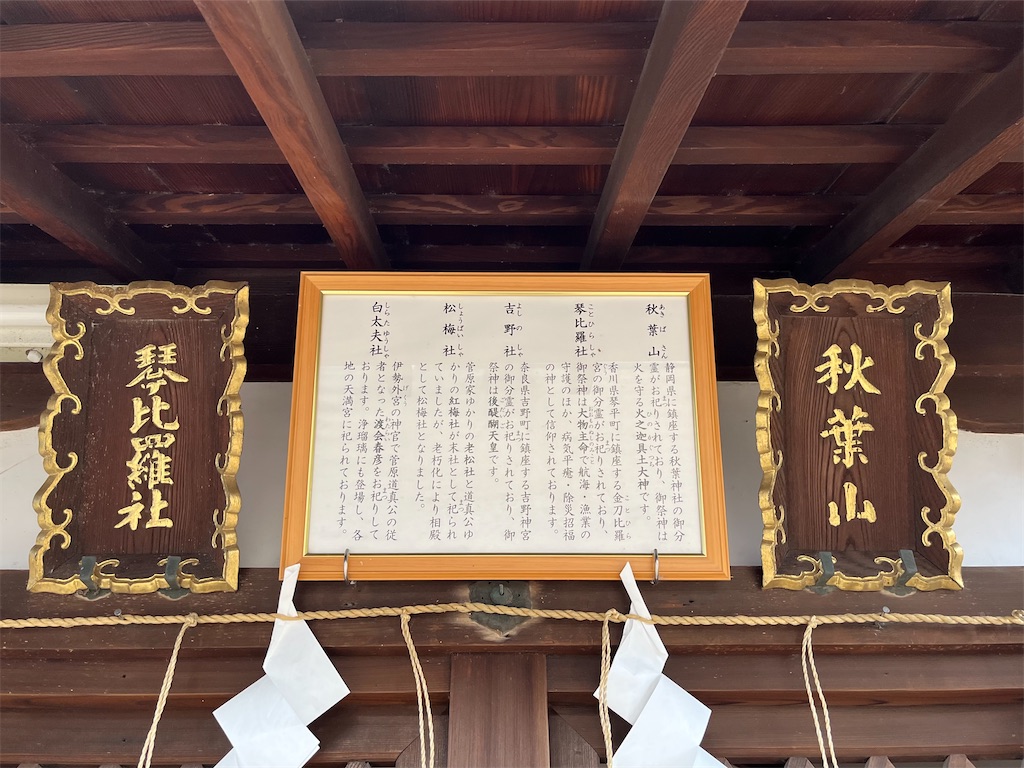 秋葉山
静岡県に鎮座する秋葉神社の御分
霊がお祀りされており、御祭神は
火を守る火之迦具土大神です。
琴比羅社
香川県琴平町に鎮座する金刀比羅
宮の御分霊がお祀りされており、
御祭神は大物主命で航海・漁業の
守護のほか、病気平癒・除災招福
の神として信仰されております。
吉野社
奈良県吉野町に鎮座する吉野神宮
の御分霊がお祀りされており、御
祭神は後醍醐天皇です。
松梅社
菅原家ゆかりの老松社と道真公ゆ
かりの紅梅社が末社として祀られ
ていましたが、老朽化により相殿
として松梅社となりました。
白太夫社
伊勢外宮の神官で菅原道真公の従
者となった渡会春彦をお祀りして
おります。浄瑠璃にも登場し、各
地の天満宮に祀られております。
秋葉山
琴比羅社